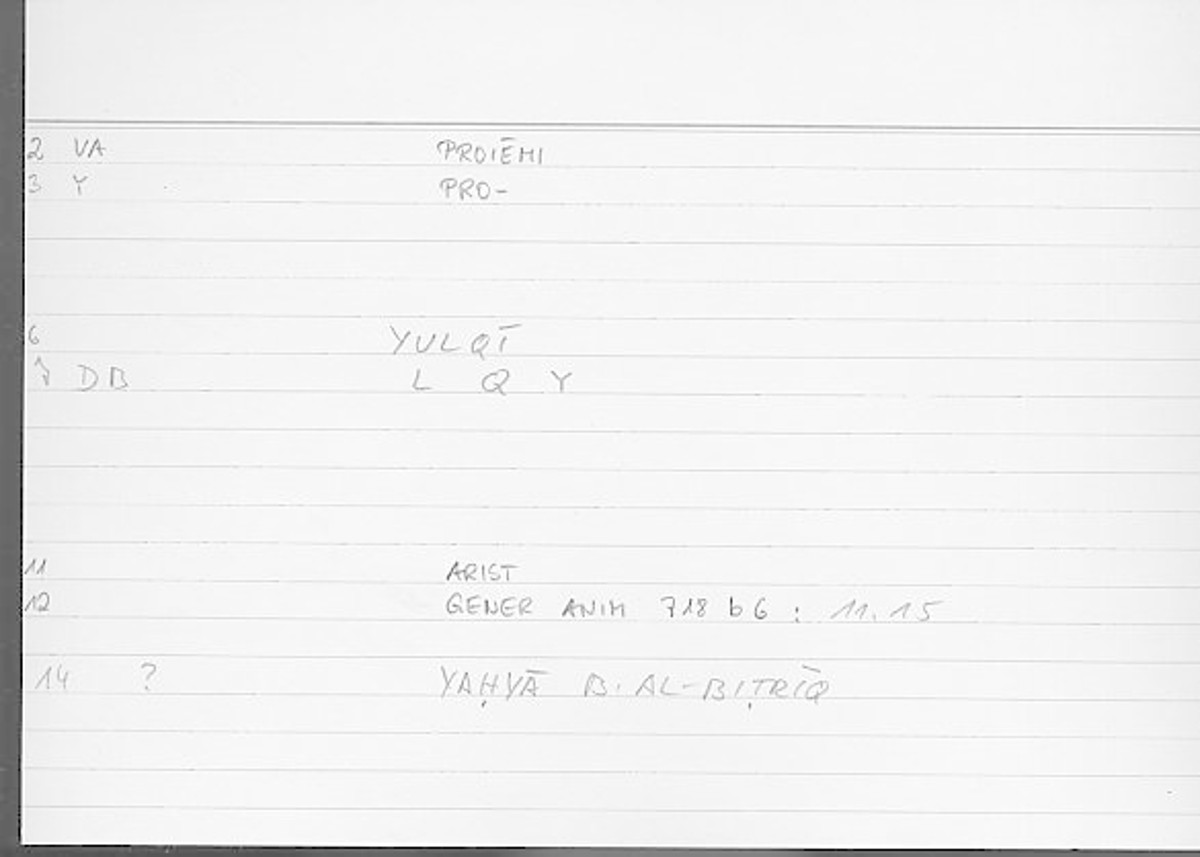 2 VA PROIĒMI
3 Y PRO-
6 YULQĪ
DB L Q Y
11 ARIST
12 GENER ANIM 718 b 6 : 11.15
14 ? YAḤYĀ B. AL-BIṬRĪQ